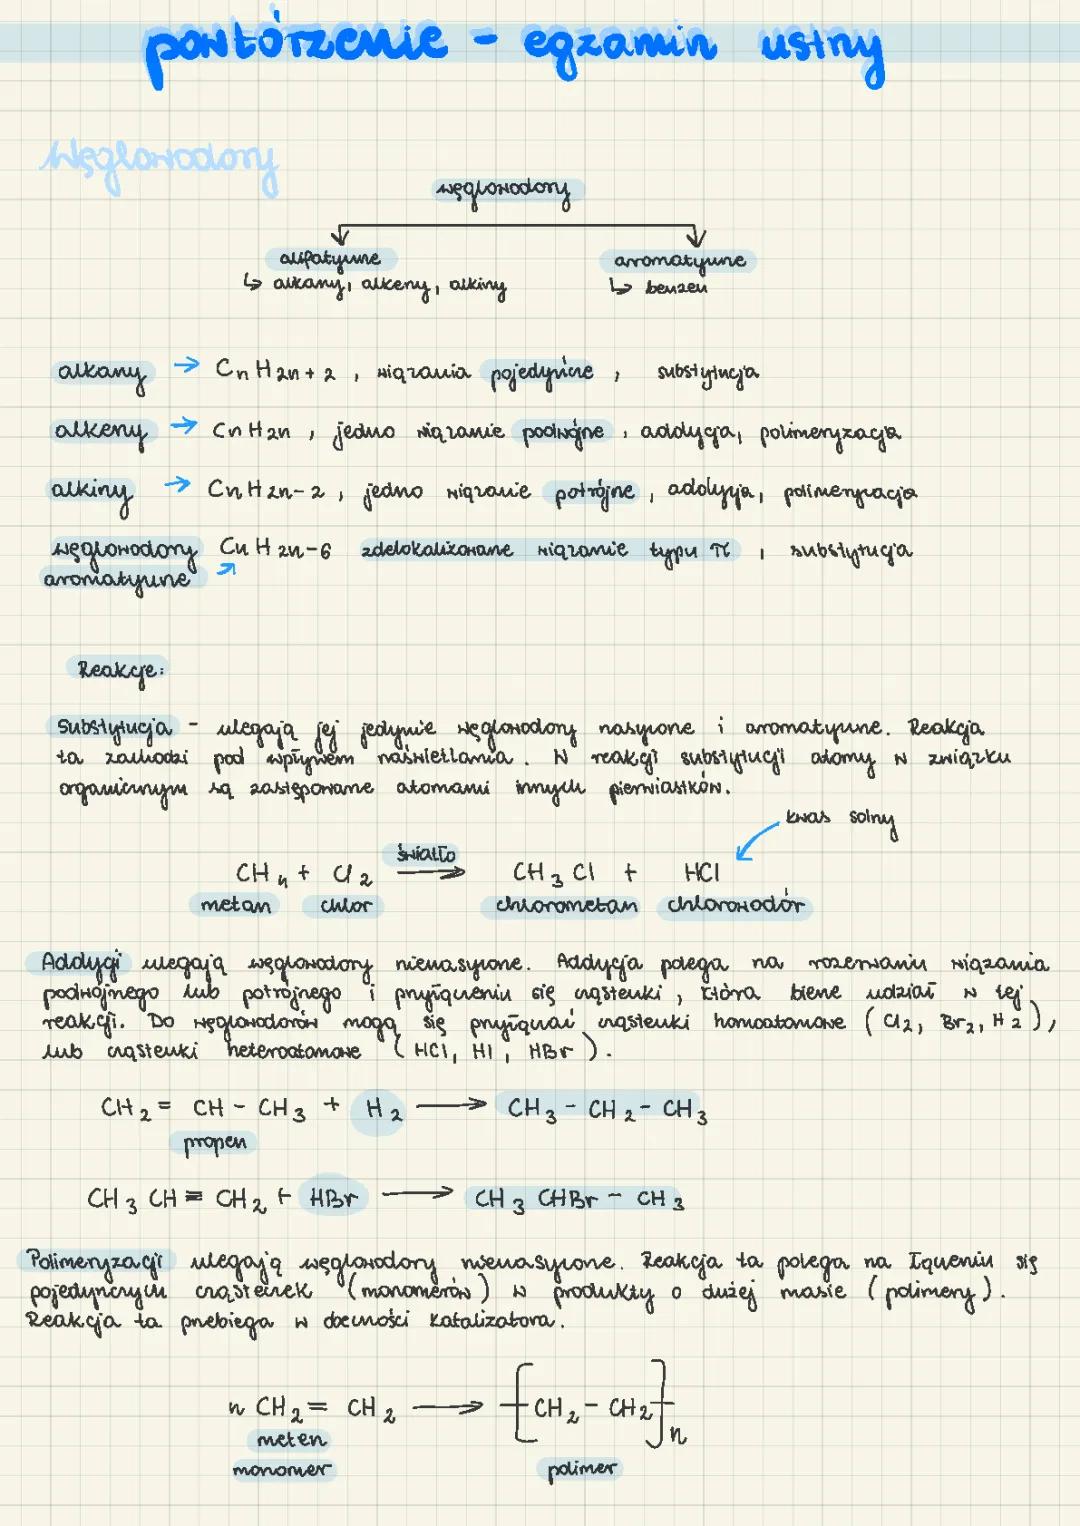 powtórzenie - egzamin ustny
Węglowodory
węglowodory
alifatyczne
aromatyczne
↳ alkany, alkeny, alkiny
↳ benzen
alkany → CnH2n+2, wiązania pojedyńcze, substytucja
alkeny → CnH2n, jedno wiązanie podwójne, addycja, polimeryzacja
alkiny → CnH2n-2, jedno wiązanie potrójne, addycja, polimeryzacja
węglowodory CnH2n-6 zdelokalizowane wiązanie typu π, substytucja
aromatyczne
Reakcje:
Substytucja - ulegają jej jedynie węglowodory nasycone i aromatyczne. Reakcja
ta zachodzi pod wpływem naświetlania. W reakcji substytucji atomy w związku
organicznym są zastępowane atomami innych pierwiastków.
kwas solny
światło
CH4 + Cl2 → CH3Cl + HCl
metan chlor chlorometan chlorowodór
Addycji ulegają węglowodory nienasycone. Addycja polega na rozerwaniu wiązania
podwójnego lub potrójnego i przyłączeniu się cząsteczki, która bierze udział w tej
reakcji. Do węglowodorów mogą się przyłączać cząsteczki homoatomowe (Cl2, Br2, H2),
lub cząsteczki heteroatomowe (HCl, HI, HBr).
CH2 = CH - CH3 + H2 → CH3 - CH2 - CH3
propen
CH3 CH ≡ CH2 + HBr → CH3 CHBr - CH3
Polimeryzacji ulegają węglowodory nienasycone. Reakcja ta polega na łączeniu się
pojedynczych cząsteczek (monomerów) w produkty o dużej masie (polimery).
Reakcja ta przebiega w obecności katalizatora.
n CH2 = CH2 → [CH2 - CH2]n
meten
monomer polimer